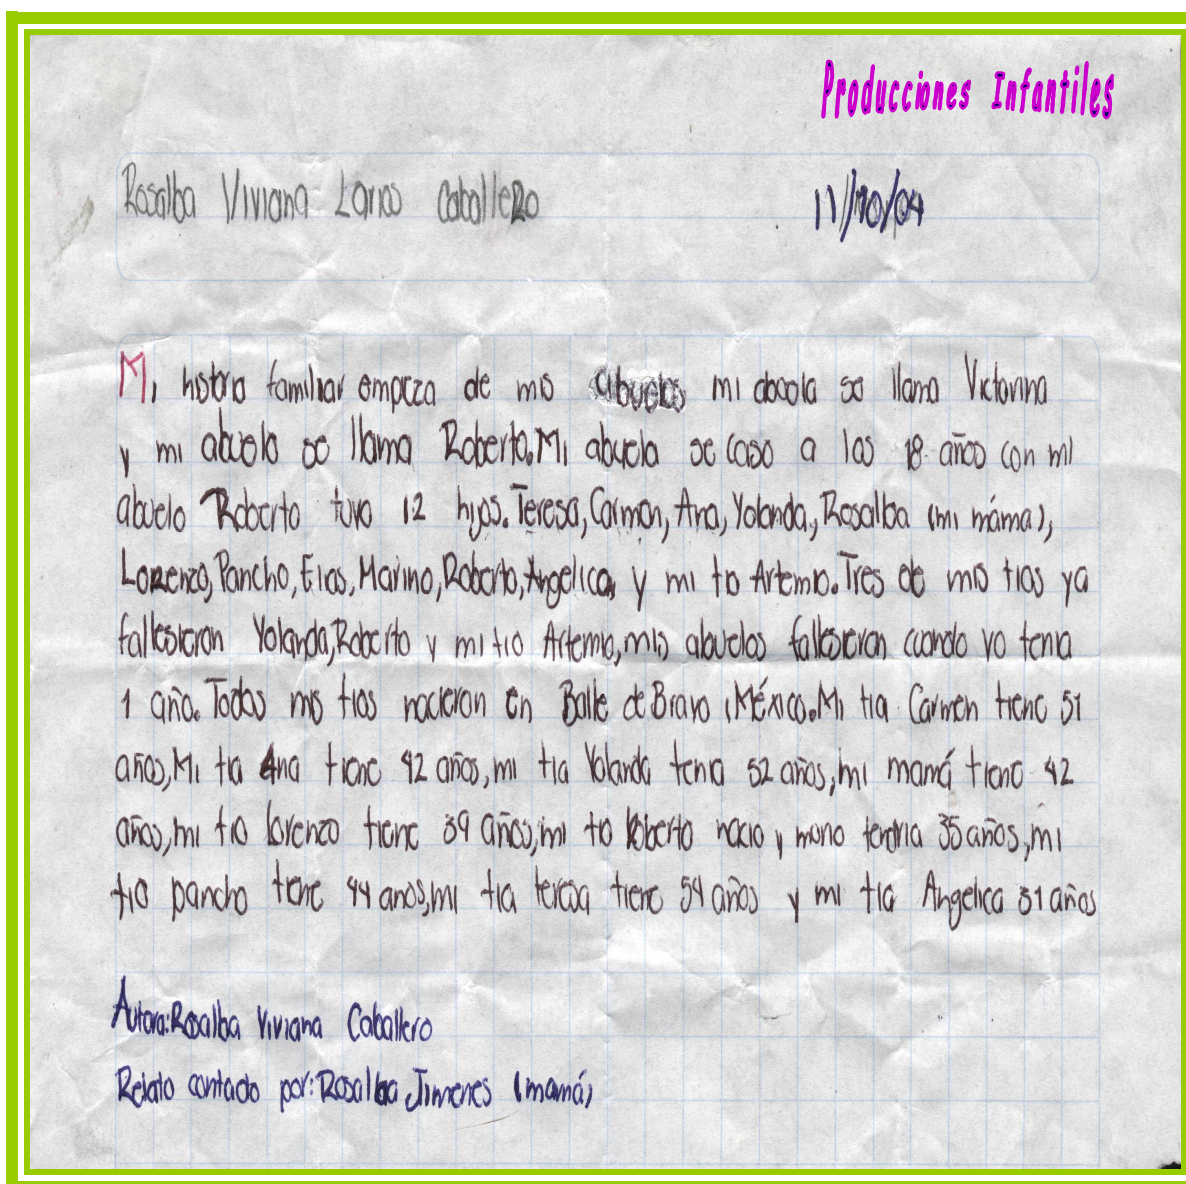 Producciones Infantiles
Rosalba Viviana Larios Caballero
11/10/04
Mi histora familiar empeza de mis abuelos mi abuela se llama Victorina
y mi abuelo se llama Roberto.Mi abuela se caso a los 18 años con mi
abuelo Roberto tuvo 12 hijos.Teresa,Carmen,Ana,Yolanda,Rosalba (mi máma),
Lorenzo,Pancho,Elias,Marino,Roberto,Angelica, y mi tio Artemio.Tres de mis tios ya
fallesieron Yolanda,Roberto y mi tio Artemio,mis abuelos fallesieron cuando yo tenia
1 año.Todos mis tios nacieron en Balle de Bravo (México.Mi tia Carmen tiene 51
años,Mi tia Ana tiene 42 años,mi tia Yolanda tenia 52 años,mi mamá tiene 42
años,mi tio lorenzo tiene 39 años,mi tio Roberto nacio y murio tendria 35 años,mi
tio pancho tiene 44 anos,mi tia teresa tiene 54 años y mi tia Angelica 31 años
Autora:Rosalba Viviana Caballero
Relato contado por:Rosalba Jimenes (mamá)